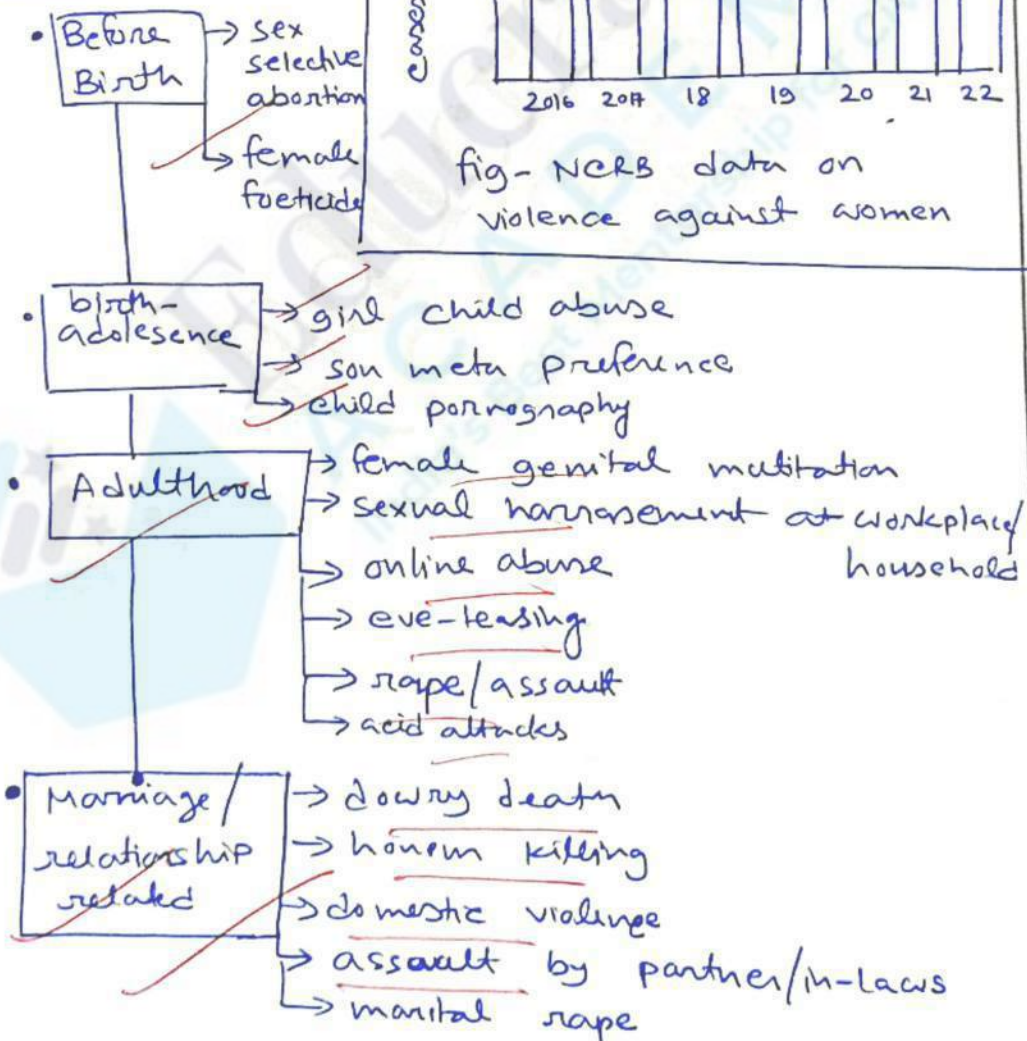 • Before Birth
→ sex selective abortion
→ female foeticide
cases
2016 2017 18 19 20 21 22
fig- NCRB data on
violence against women
• birth-
adolesence
→ girl child abuse
→ son meta preference
→ child pornography
• Adulthood
→ female genital mutitation
→ sexual harrasement at workplace/
household
→ online abuse
→ eve-teasing
→ rape/assault
→ acid attacks
• Marriage/
relationship
related
→ dowry death
→ honour killing
→ domestic violence
→ assault by partner/in-laws
→ marital rape